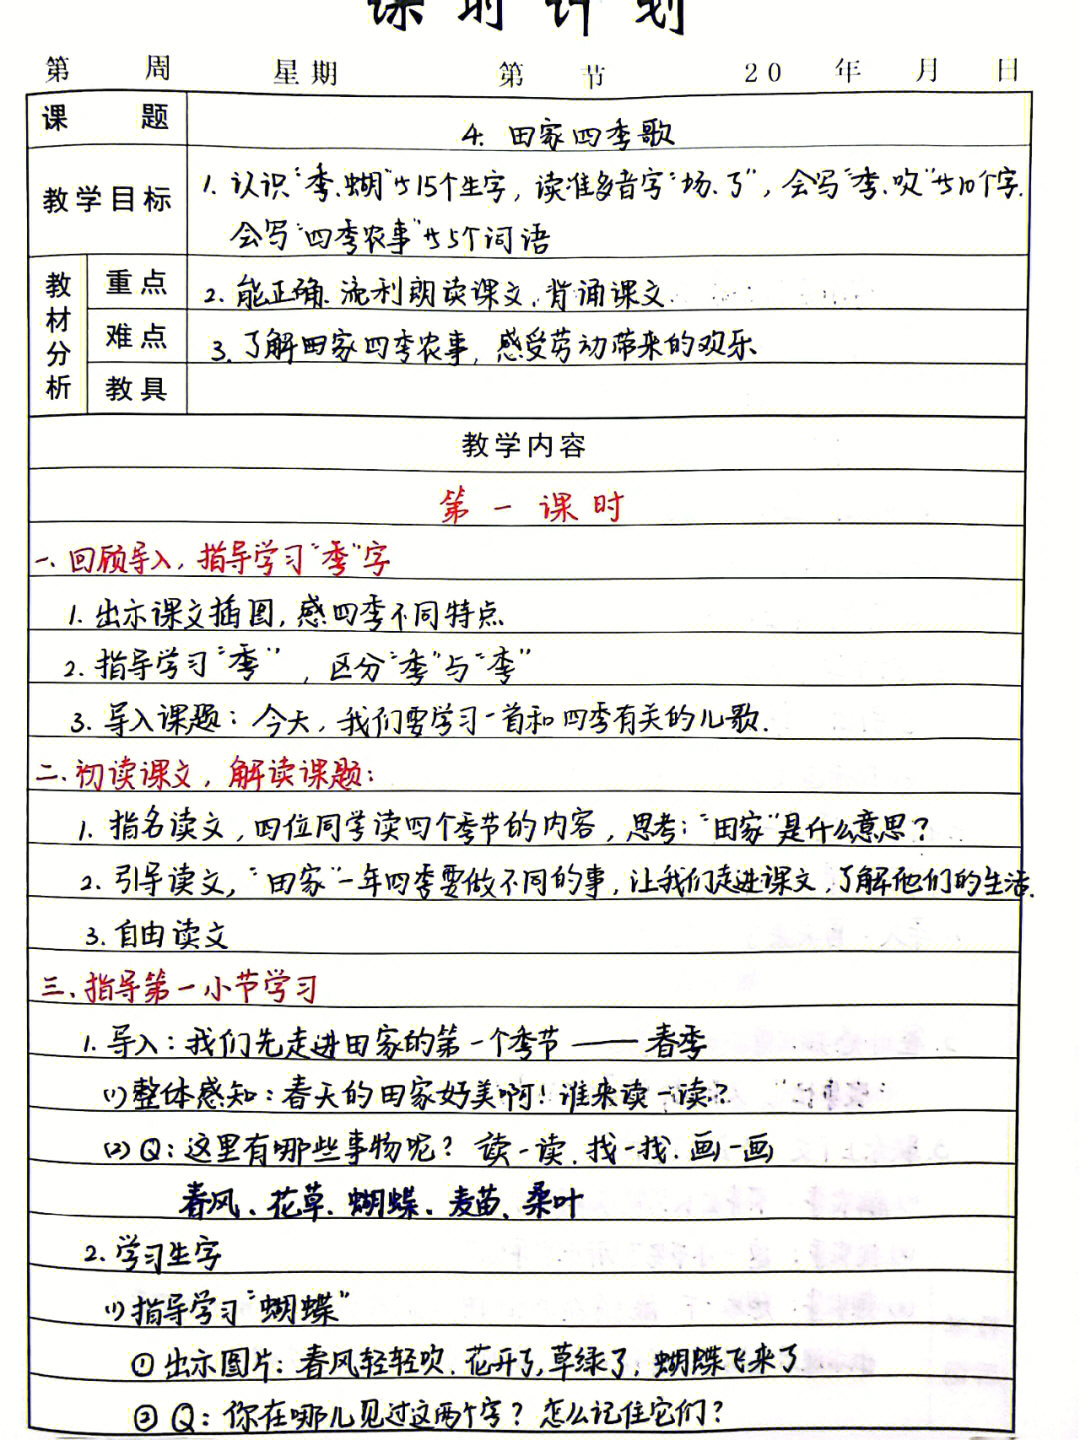 课时计划
第 周 星期 第 节 20 年 月 日
课题 4. 田家四季歌
教学目标 1. 认识“季、蝴”等15个生字，读准多音字“场、了”，会写“季、吹”等10个字.
会写“四季农事”等5个词语
教材分析 重点 2. 能正确、流利朗读课文、背诵课文.
难点 3. 了解田家四季农事，感受劳动带来的欢乐
教具
教学内容
第一课时
一、回顾导入，指导学习“季”字
1. 出示课文插图，感四季不同特点
2. 指导学习“季”，区分“季”与“李”
3. 导入课题：今天，我们要学习一首和四季有关的儿歌.
二、初读课文，解读课题：
1. 指名读文，四位同学读四个季节的内容，思考：“田家”是什么意思？
2. 引导读文，“田家”一年四季要做不同的事，让我们走进课文，了解他们的生活.
3. 自由读文
三、指导第一小节学习
1. 导入：我们先走进田家的第一个季节——春季
(1) 整体感知：春天的田家好美啊！谁来读一读？
(2) Q：这里有哪些事物呢？读一读、找一找、画一画
春风、花草、蝴蝶、麦苗、桑叶
2. 学习生字
(1) 指导学习“蝴蝶”
① 出示图片：春风轻轻吹、花开了，草绿了，蝴蝶飞来了
② Q：你在哪儿见过这两个字？怎么记住它们？